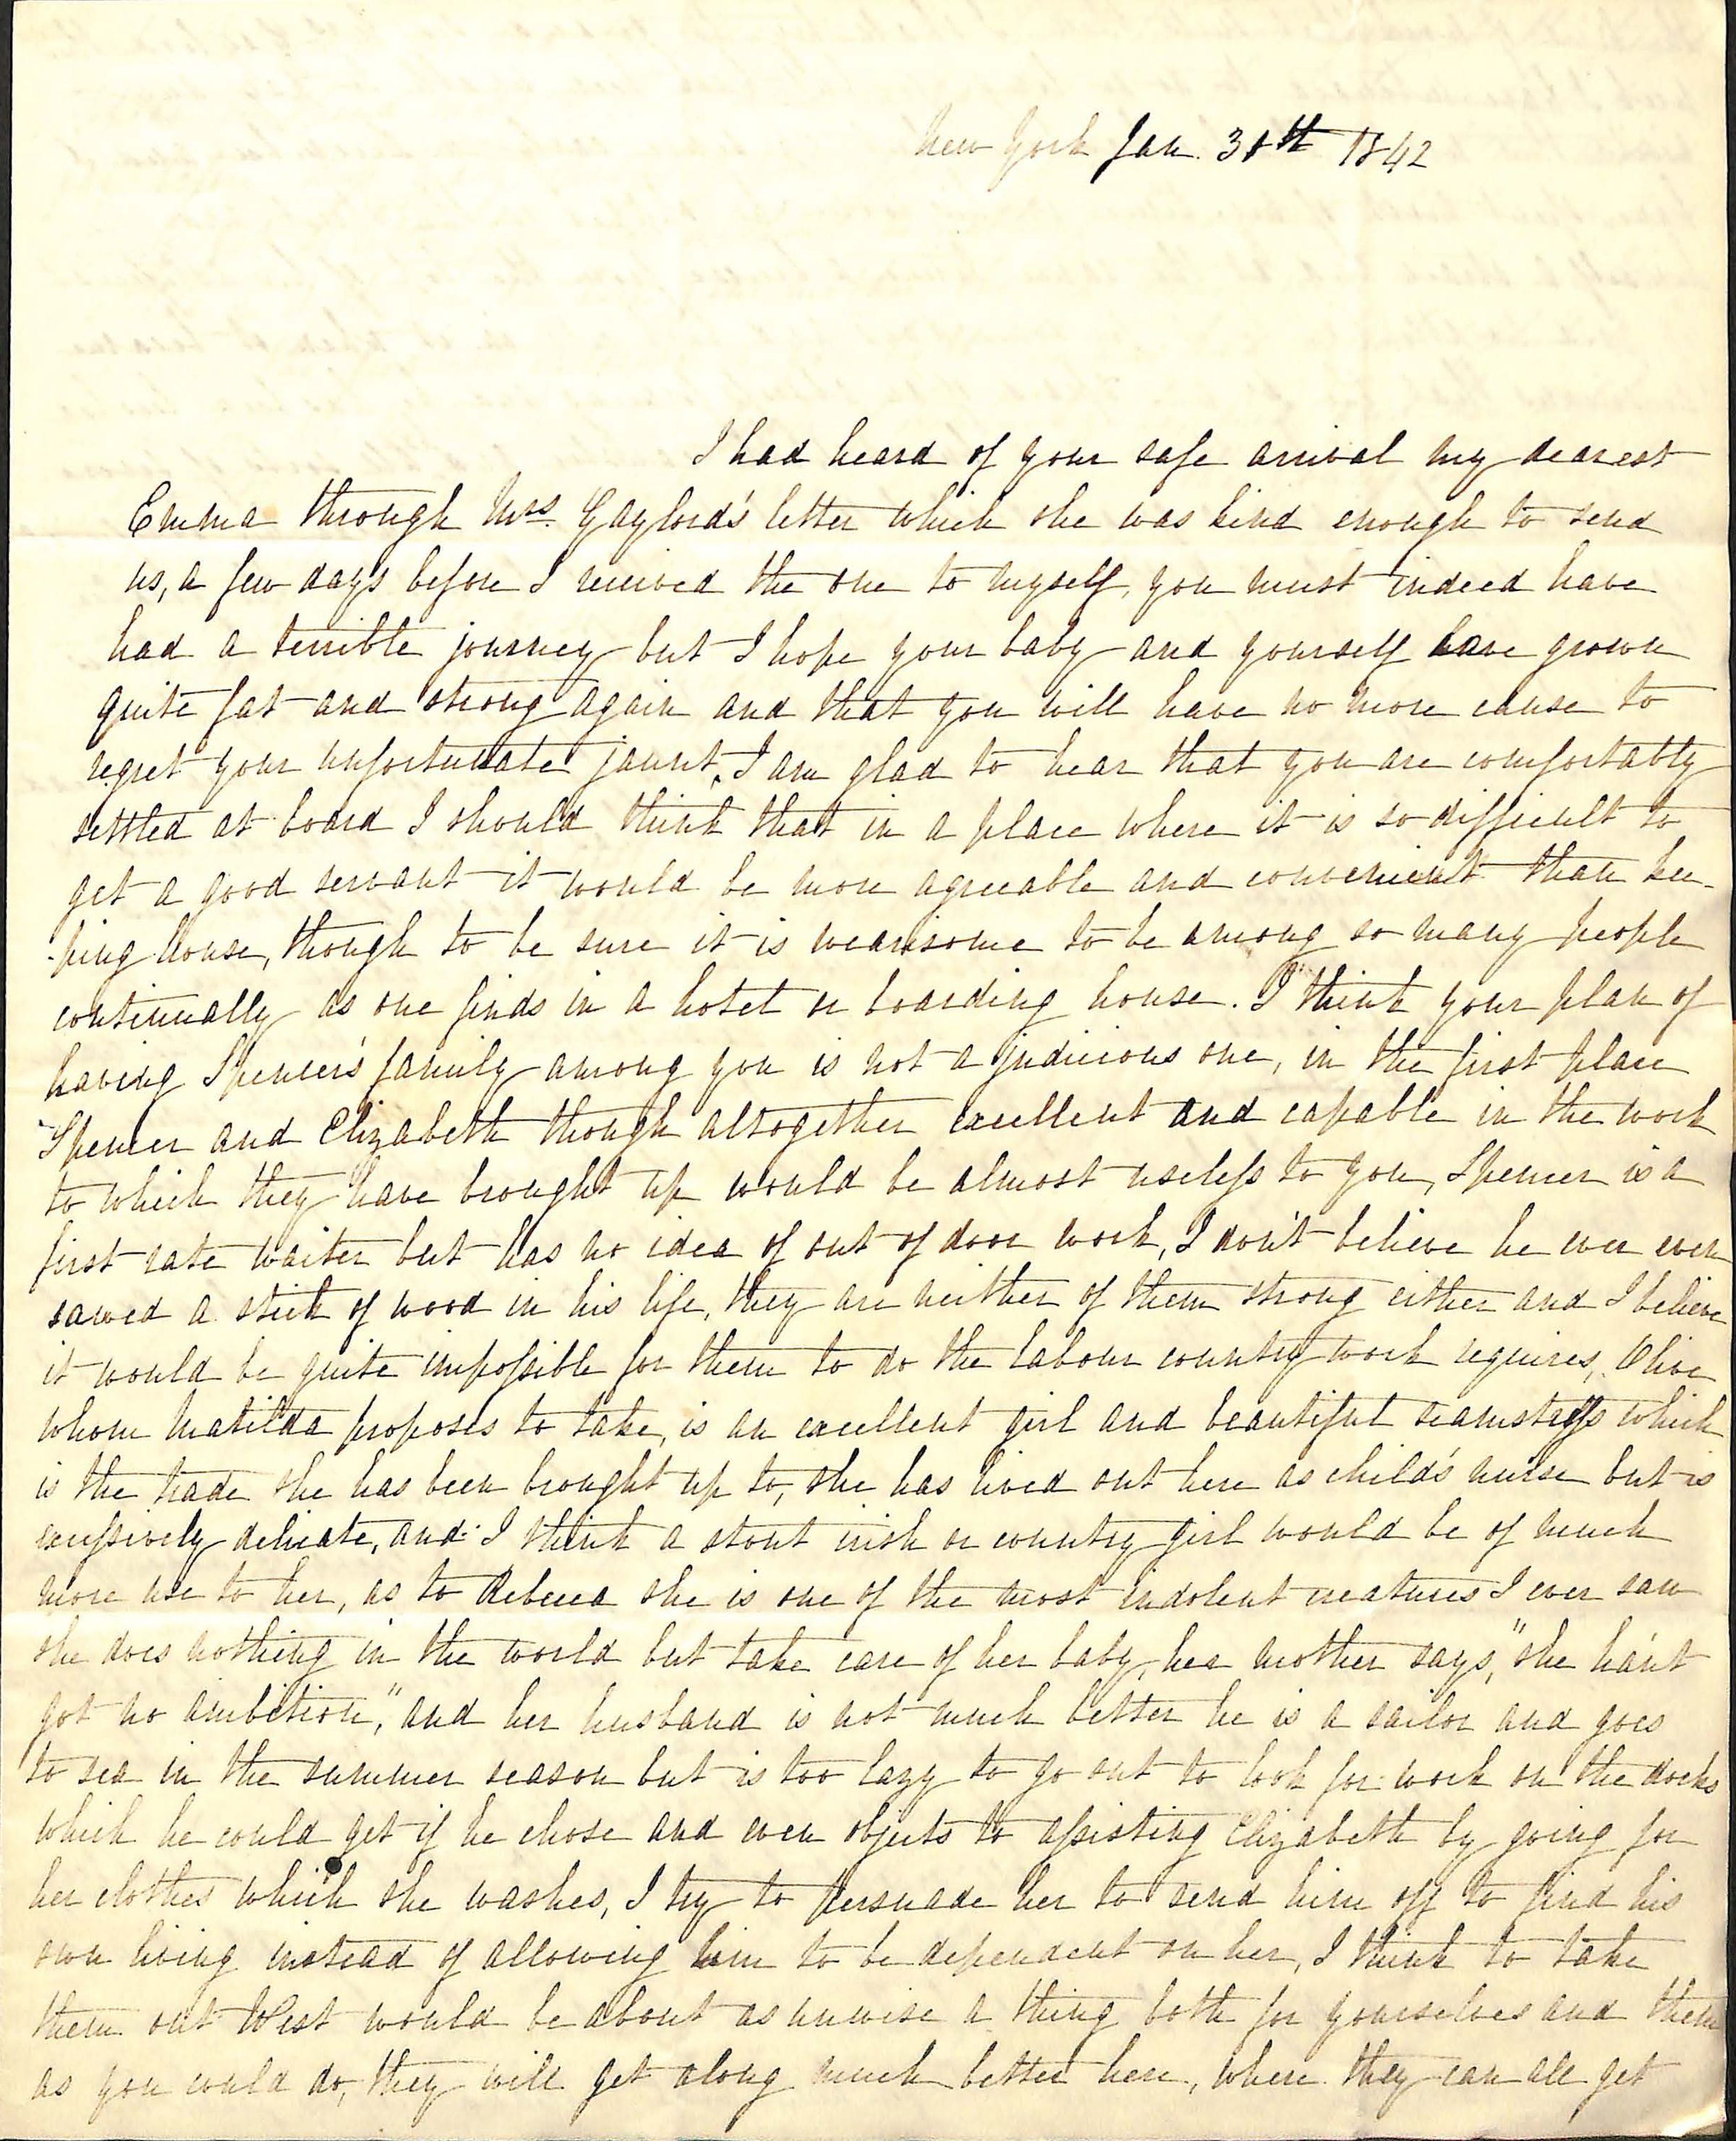 New York Jan. 31th 1842
I had heard of your safe arrival my dearest
Emma through Mrs. Gaylord's letter which she was kind enough to send
us, a few days before I received the one to myself, you must indeed have
had a terrible journey but I hope your baby and yourself have grown
quite fat and strong again and that you will have no more cause to
regret your unfortunate jaunt, I am glad to hear that you are comfortably
settled at board I should think that in a place where it is so difficult to
get a good servant it would be more agreeable and convenient than kee-
-ping house, though to be sure it is wearisome to be among so many people
continually as one finds in a hotel or boarding house. I think your plan of
having Spencer's family among you is not a judicious one, in the first place
Spencer and Elizabeth though altogether excellent and capable in the work
to which they have brought up would be almost useless to you, Spencer is a
first rate waiter but has no idea of out of door work, I don't believe he ever even
sawed a stick of wood in his life, they are neither of them strong either and I believe
it would be quite impossible for them to do the labour country work requires, Olive
whom Matilda proposes to take, is an excellent girl and beautiful seamstress which
is the trade she has been brought up to, she has lived out here as child's nurse but is
excessively delicate, and I think a stout irish or country girl would be of much
more use to her, as to Rebecca she is one of the most indolent creatures I ever saw
she does nothing in the world but take care of her baby, her mother says, "she ha'nt
got no ambition," and her husband is not much better he is a sailor and goes
to sea in the summer season but is too lazy to go out to look for work on the docks
which he could get if he chose and even objects to assisting Elizabeth by going for
her clothes which she washes, I try to persuade her to send him off to find his
own living instead of allowing him to be dependent on her, I think to take
them out West would be about as unwise a thing both for yourselves and them
as you could do, they will get along much better here, where they can all get